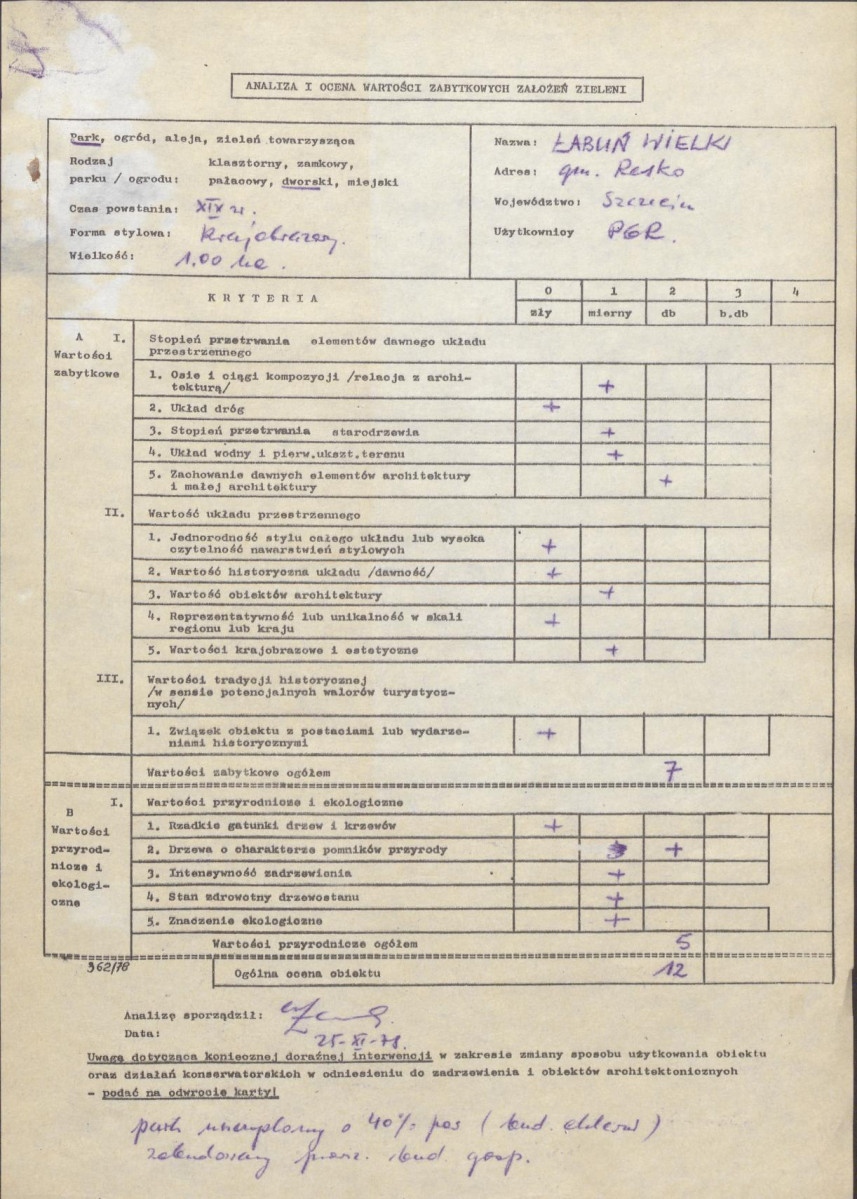 ANALIZA I OCENA WARTOŚCI ZABYTKOWYCH ZAŁOŻEŃ ZIELENI
Park, ogród, aleja, zieleń towarzysząca
Rodzaj klasztorny, zamkowy,
parku / ogrodu: pałacowy, dworski, miejski
Czas powstania: XIX w.
Forma stylowa: Krajobrazowy.
Wielkość: 1.00 ha.
Nazwa: ŁABUŃ WIELKI
Adres: gm. Resko
Województwo: Szczecin
Użytkownicy PGR.
KRYTERIA 0 1 2 3 4
zły mierny db b.db
A I. Stopień przetrwania elementów dawnego układu
przestrzennego
Wartości
zabytkowe
1. Osie i ciągi kompozycji /relacja z archi-
tekturą/ +
2. Układ dróg +
3. Stopień przetrwania starodrzewia +
4. Układ wodny i pierw.ukszt.terenu +
5. Zachowanie dawnych elementów architektury
i małej architektury +
II. Wartość układu przestrzennego
1. Jednorodność stylu całego układu lub wysoka
czytelność nawarstwień stylowych +
2. Wartość historyczna układu /dawność/ +
3. Wartość obiektów architektury +
4. Reprezentatywność lub unikalność w skali
regionu lub kraju +
5. Wartości krajobrazowe i estetyczne +
III. Wartości tradycji historycznej
/w sensie potencjalnych walorów turystycz-
nych/
1. Związek obiektu z postaciami lub wydarze-
niami historycznymi +
Wartości zabytkowe ogółem 7
B I. Wartości przyrodnicze i ekologiczne
Wartości
przyrod-
nicze i
ekologi-
czne
1. Rzadkie gatunki drzew i krzewów +
2. Drzewa o charakterze pomników przyrody +
3. Intensywność zadrzewienia +
4. Stan zdrowotny drzewostanu +
5. Znaczenie ekologiczne +
Wartości przyrodnicze ogółem 5
362/78
Ogólna ocena obiektu 12
Analizę sporządził:
Data: 25-XI-78.
Uwaga dotycząca koniecznej doraźnej interwencji w zakresie zmiany sposobu użytkowania obiektu
oraz działań konserwatorskich w odniesieniu do zadrzewienia i obiektów architektonicznych
- podać na odwrocie karty!
park o 40% pow (
zabudowany przez bud. gosp.